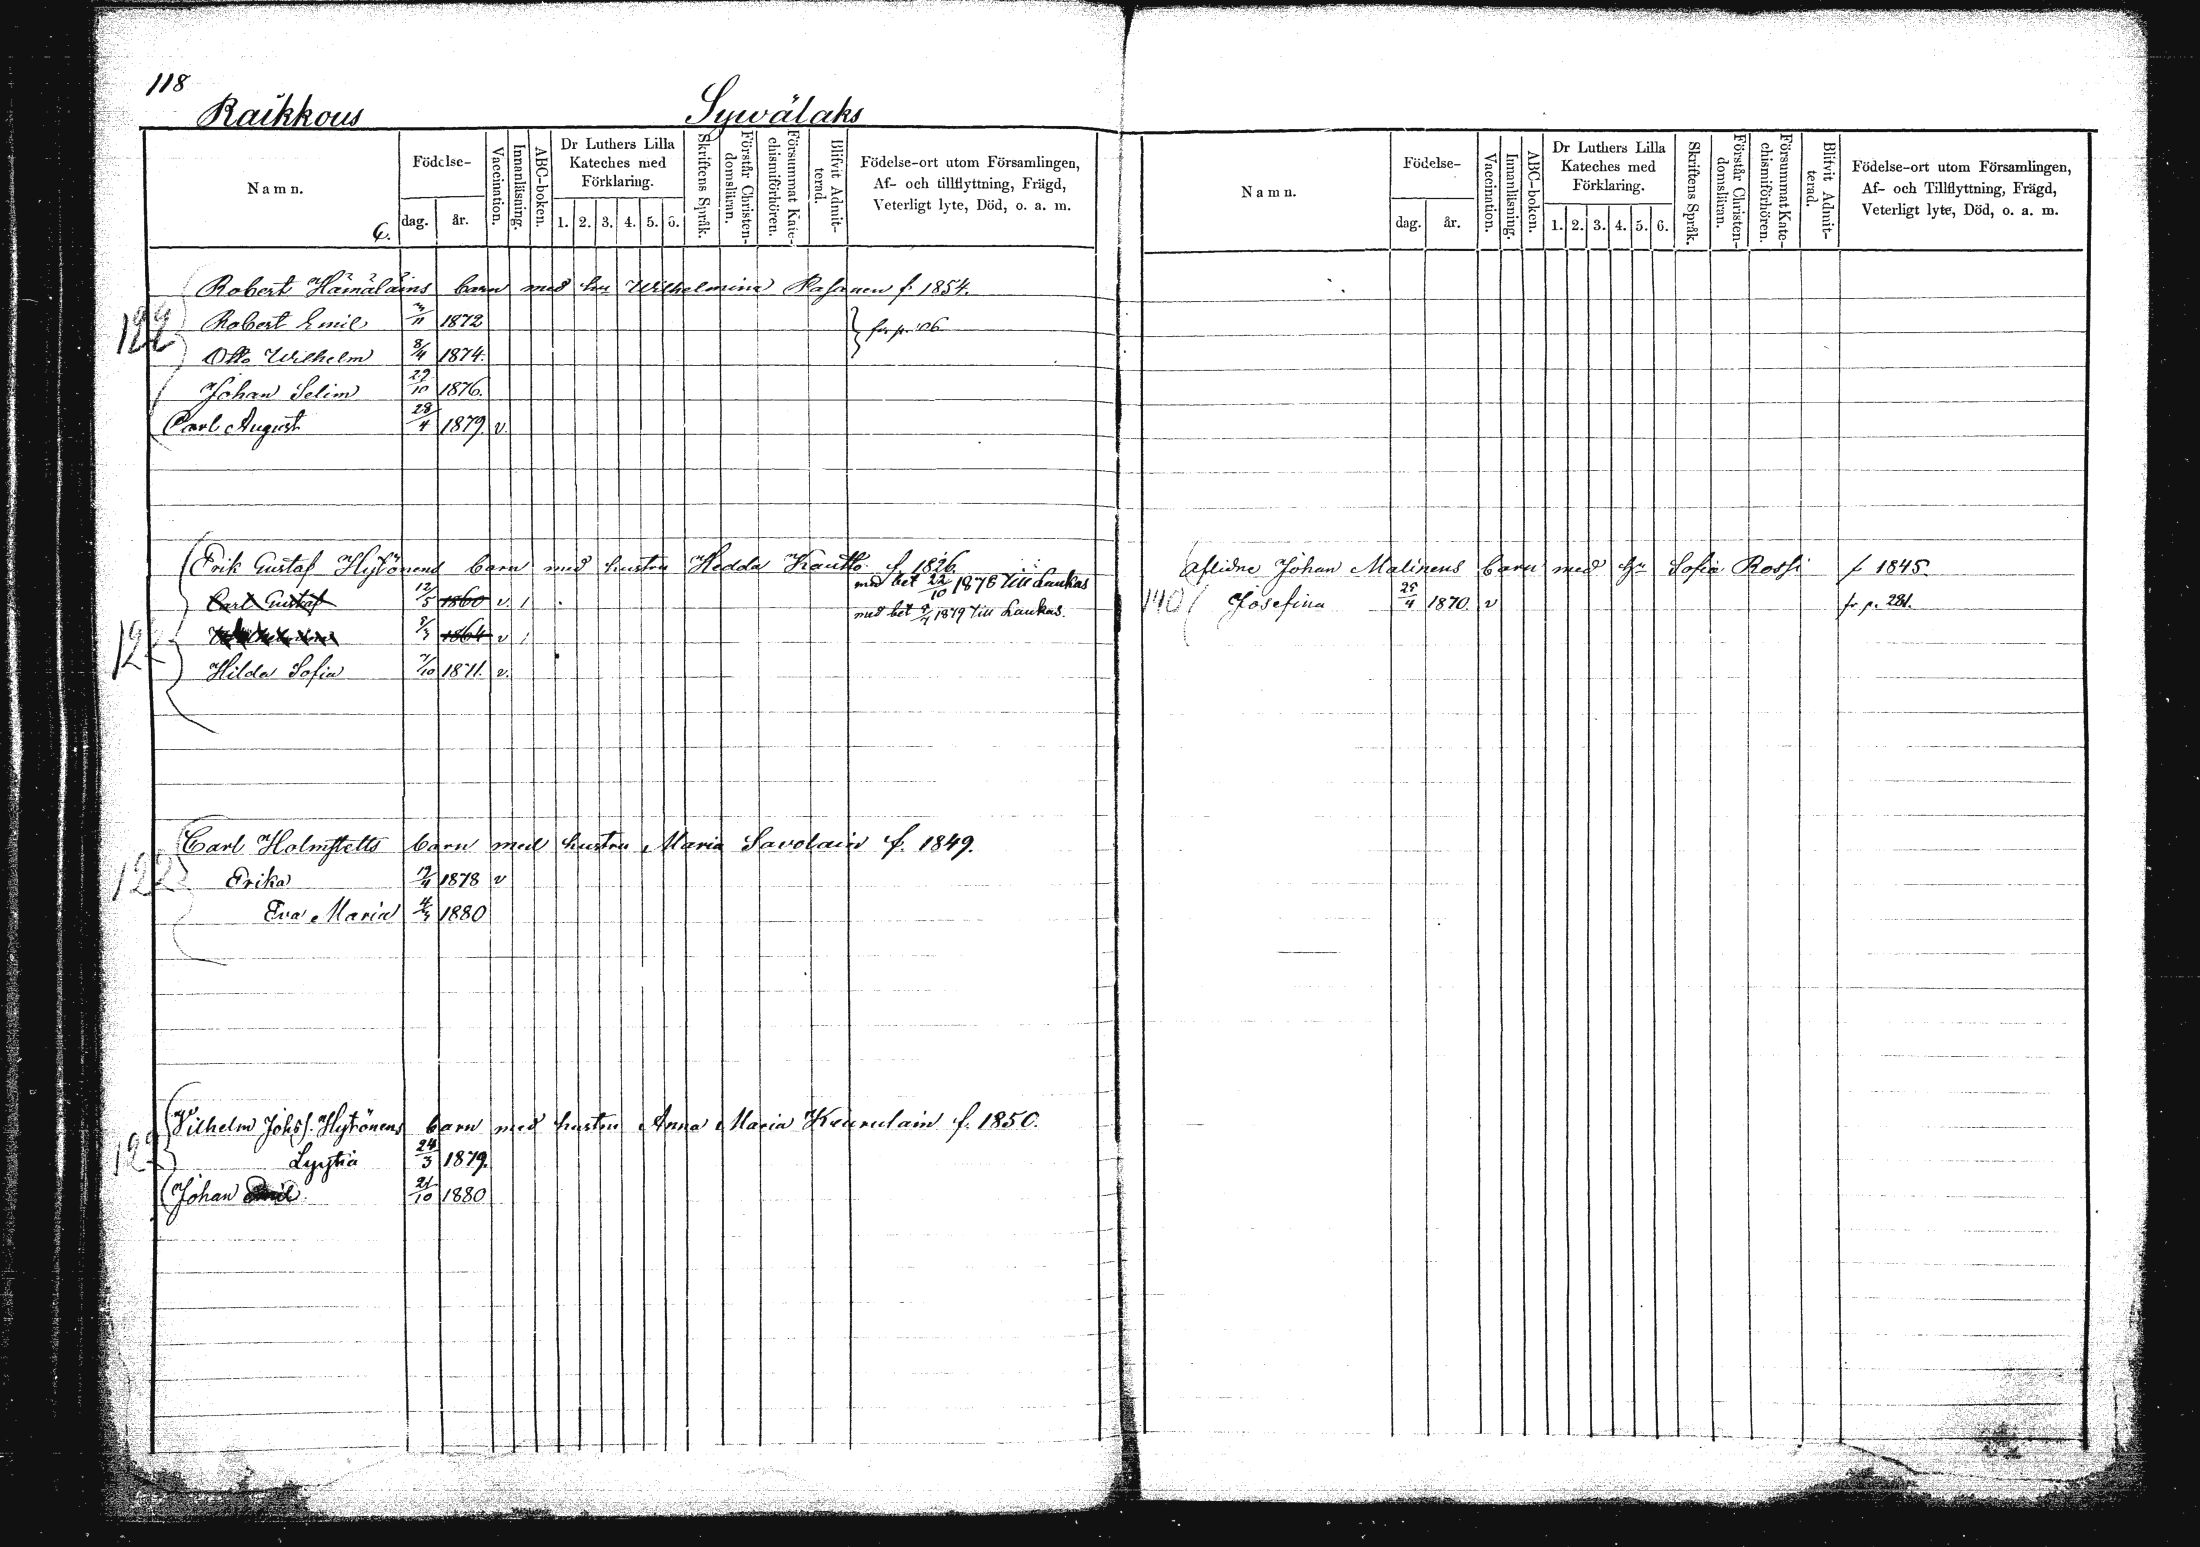 118
Raikkous Sywälaks
Namn. Födelse- dag. år. Vaccination. Innanläsning. ABC-boken. Dr Luthers Lilla Kateches med Förklaring. 1. 2. 3. 4. 5. 6. Skriftens Språk. Förstår Christendomsläran. Försummat Katechismiförhören. Blifvit Admitterad. Födelse-ort utom Församlingen, Af- och tillflyttning, Frägd, Veterligt lyte, Död, o. a. m.
Robert Hämäläins barn med hu Wilhelmina Pasanen f. 1854.
122
Robert Emil /11 1872
Otto Wilhelm 8/4 1874.
Johan Selim 29/10 1876.
Carl August 28/4 1879. v.
Erik Gustaf Hytönens barn med hustru Hedda Kautto f. 1826.
Carl Gustaf 12/5 1860 v. 1 med bet 22/10 1878 till Laukas
1864 v 1 med bet 1879 till Laukas.
Hilda Sofia 7/10 1871. v.
Carl Holmstetts barn med hustru Maria Savolain f. 1849.
122
Erika 17/4 1878 v
Eva Maria 4/ 1880
Vilhelm Johsf. Hytönens barn med hustru Anna Maria Kaurulain f. 1850.
122
Lyytia 24/3 1879.
Johan 21/10 1880
Namn. Födelse- dag. år. Vaccination. Innanläsning. ABC-boken. Dr Luthers Lilla Kateches med Förklaring. 1. 2. 3. 4. 5. 6. Skriftens Språk. Förstår Christendomsläran. Försummat Katechismiförhören. Blifvit Admitterad. Födelse-ort utom Församlingen, Af- och Tillflyttning, Frägd, Veterligt lyte, Död, o. a. m.
Aflidne Johan Malinens barn med hu Sofia Rossi f 1845.
140 Josefina 25/4 1870. v fr p. 281.